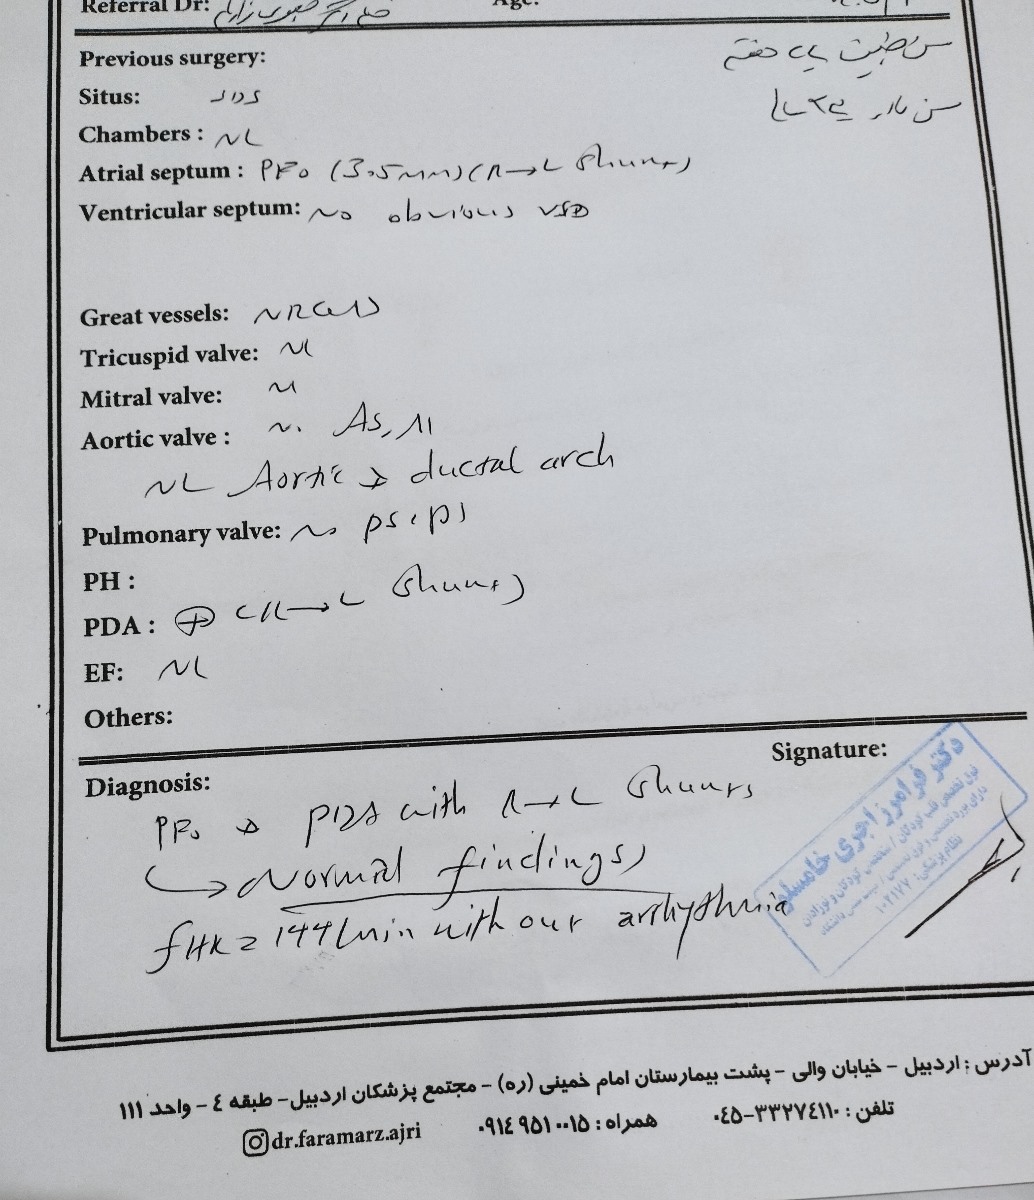 Referral Dr:
Age:
Previous surgery:
Situs: SDS
سن
Chambers : NL
سن مادر
Atrial septum : PFO (3.5mm) (R→L Shunt)
Ventricular septum: No obvious VSD
Great vessels: NRGA
Tricuspid valve: NL
Mitral valve: NL
Aortic valve : No AS, AI
NL Aortic & ductal arch
Pulmonary valve: No PS, PI
PH :
PDA : ⊕ (R→L Shunt)
EF: NL
Others:
Signature:
Diagnosis:
PFO & PDA with R→L Shunts
↳ Normal findings)
FHR = 144/min without arrhythmia
دکتر فرامرز اجری خامسلو
آدرس : اردبیل - خیابان والی - پشت بیمارستان امام خمینی (ره) - مجتمع پزشکان اردبیل- طبقه ٤ - واحد ١١١
تلفن : ٠٤٥-٣٣٢٧٤١١٠ همراه : ٠٩١٤ ٩٥١ ٠٠١٥
dr.faramarz.ajri